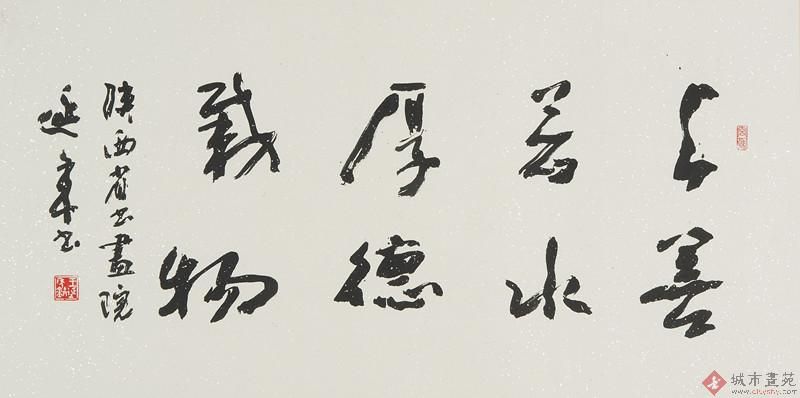 上善
若水
厚德
載物
陕西省书畫院
延年书
城市畫苑
www.cityshy.com